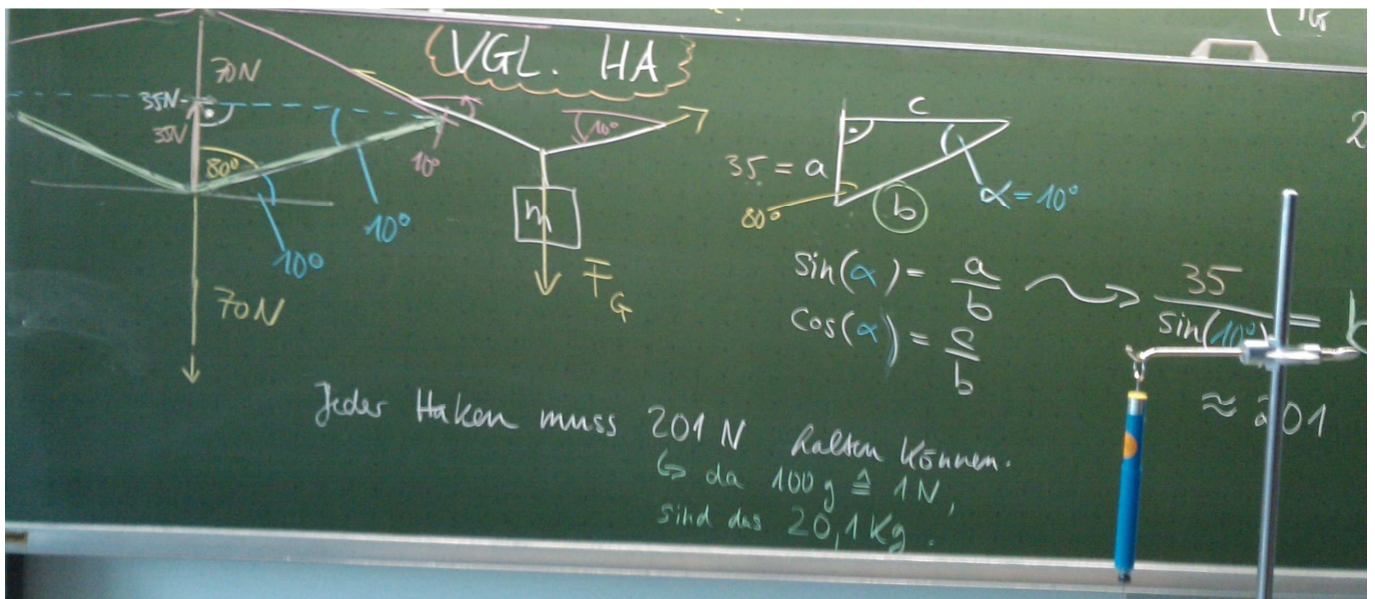 VGL. HA
70N
35N
35N
80°
10°
10°
10°
70N
10°
m
F_G
c
35 = a
80°
b
α = 10°
sin(α) = a/b
35/sin(10°)
cos(α) = c/b
≈ 201
2
Jeder Haken muss 201 N halten können.
↳ da 100 g ≙ 1N,
sind das 20,1 kg.